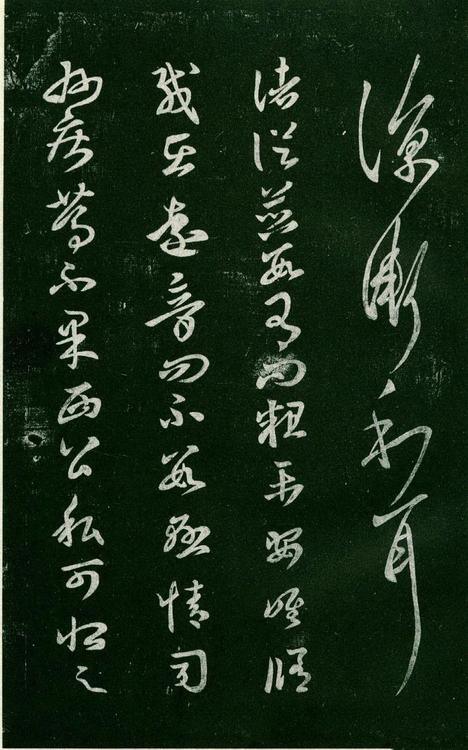 耳
諸從並數有問粗平安唯脩
載在遠音問不數懸情司
州疾篤不果西公私可恨足